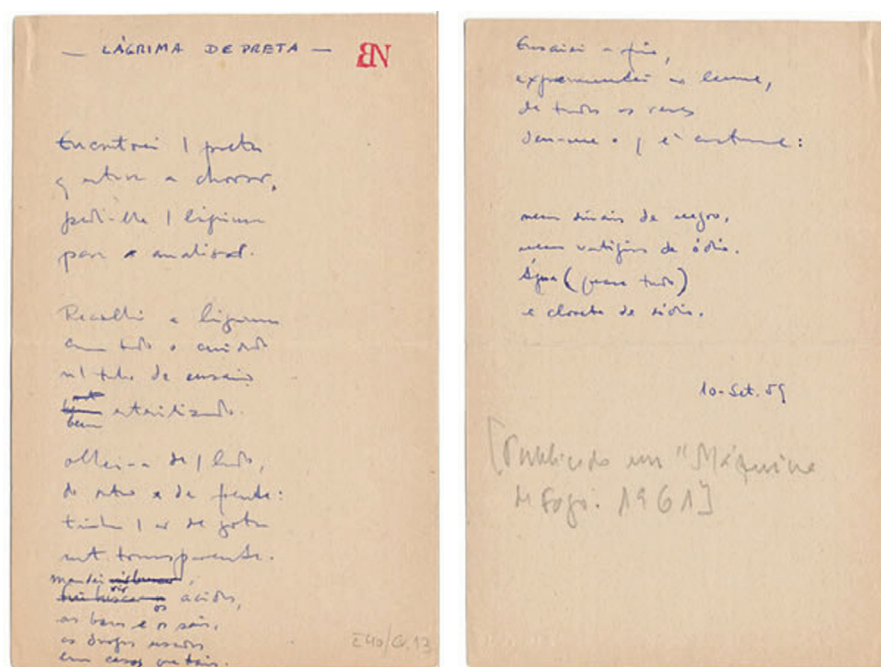 — LÁGRIMA DE PRETA —
BN
Encontrei 1 preta
q estava a chorar,
pedi-lhe 1 lágrima
para a analisar.
Recolhi a lágrima
com todo o cuidado
n1 tubo de ensaio
bem esterilizado.
olhei-a de 1 lado,
do outro e de frente:
tinha 1 ar de gota
mt transparente.
mandei
vir
os ácidos,
as bases e os sais,
as drogas usadas
em casos que tais.
Ensaiei a frio,
experimentei ao lume,
de todas as vezes
deu-me o q é costume:
nem sinais de negro,
nem vestígios de ódio.
Água (quase tudo)
e cloreto de sódio.
10-Set. 59
[Publicado em "Máquina
de Fogo. 1961]